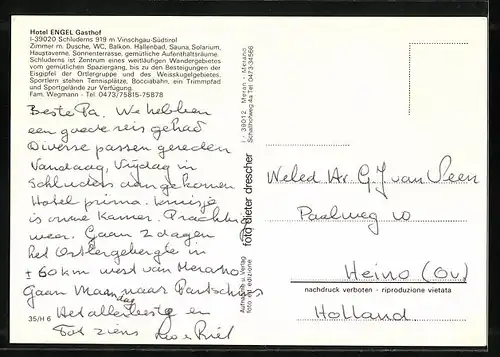 Hotel ENGEL Gasthof
I-39020 Schluderns 919 m Vinschgau-Südtirol
Zimmer m. Dusche, WC, Balkon. Hallenbad, Sauna, Solarium,
Hauptaverne. Sonnenterrasse, gemütliche Aufenthaltsräume.
Schluderns ist Zentrum eines weitläufigen Wandergebietes
vom gemütlichen Spaziergang, bis zu den Besteigungen der
Eisgipfel der Ortlergruppe und des Weisskugelgebietes.
Sportlern stehen Tennisplätze, Bocciabahn, ein Trimmpfad
und Sportgelände zur Verfügung.
Fam. Wegmann - Tel. 0473/75815-75878
Beste Pa. We hebben
een goede reis gehad
Diverse passen gereden
Vandaag, Vrijdag in
Schluderns aangekomen
Hotel prima. Kruisje
is onze Kamer. Prachtig
weer. Gaan 2 dagen
het Ortlergebergte in
± 60 km west van Merano
Gaan Maandag naar
Het allerbeste en
Tot ziens
35/H 6
Aufnahme u. Verlag
foto ed edizione
foto dieter drescher
I - 39012 Meran - Merano
Schallhofweg 4a Tel 0473-34566
Weled Hr. G.J. van Veen
Paalweg 10
Heino (Ov)
nachdruck verboten - riproduzione vietata
Holland